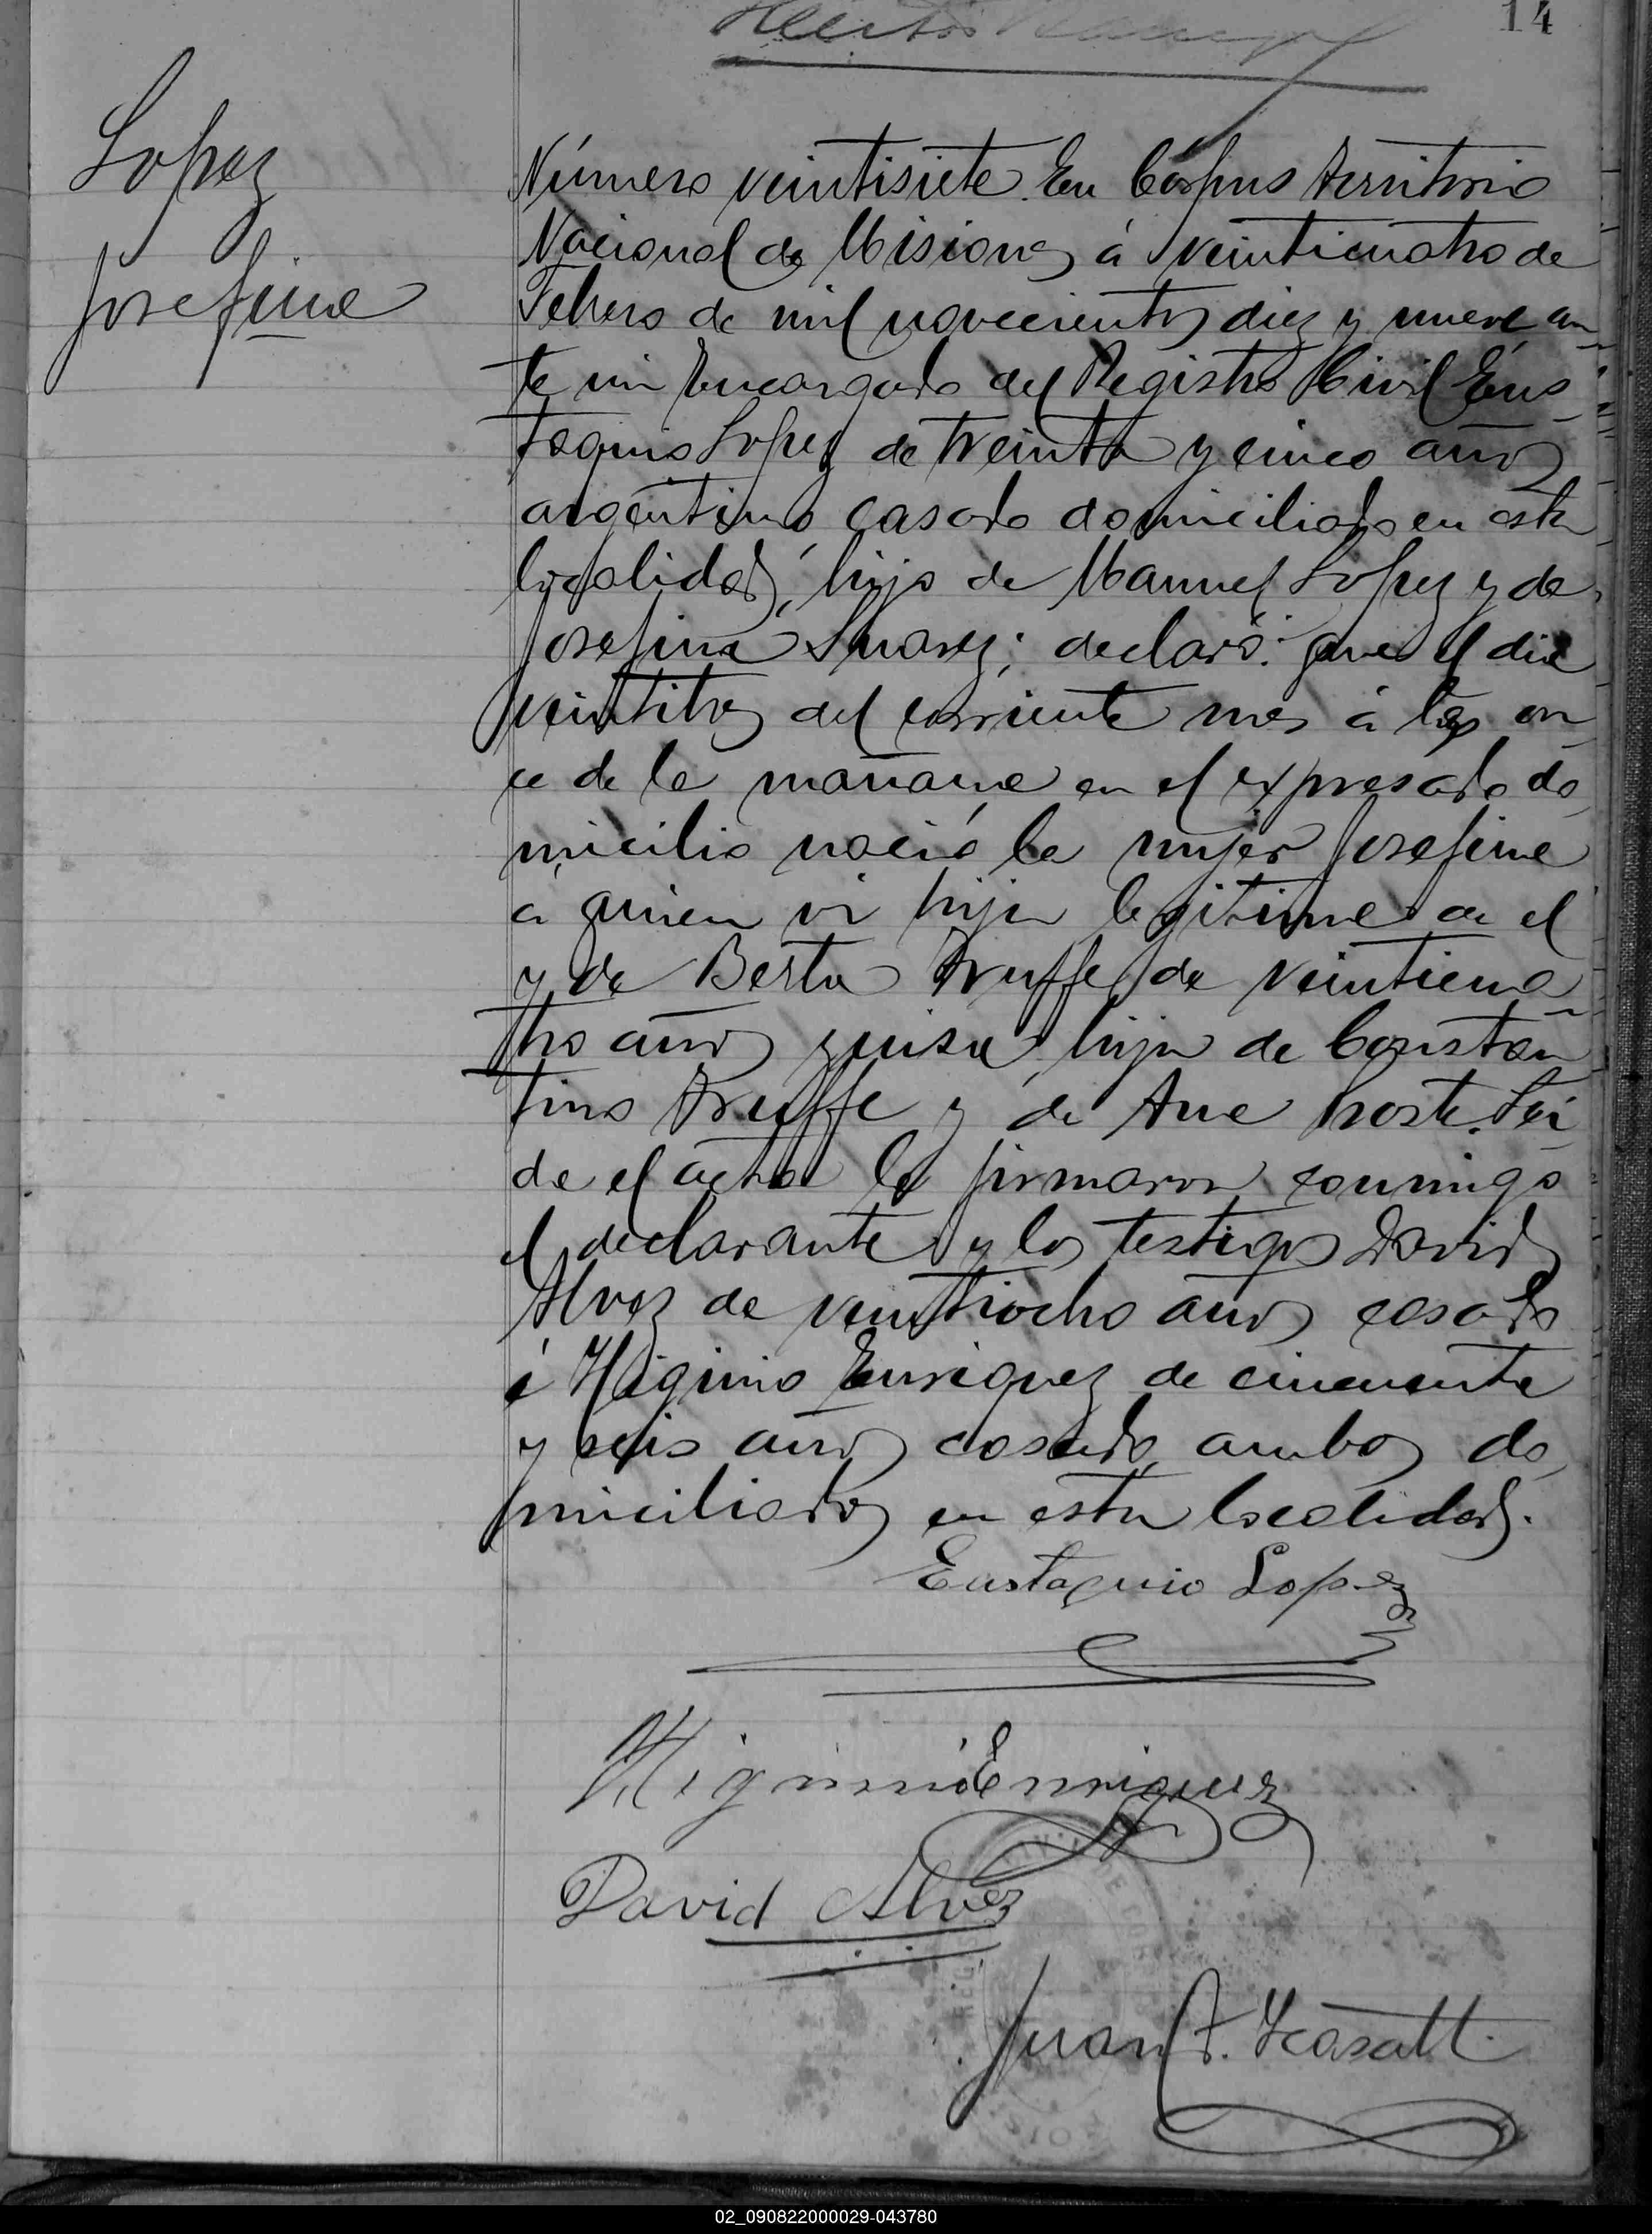 14
Lopez
Josefina
Número veintisiete. En Corpus Territorio
Nacional de Misiones á veinticuatro de
Febrero de mil novecientos diez y nueve an-
te mi Encargado del Registro Civil Eus-
taquio Lopez de treinta y cinco años
argentino, casado domiciliado en esta
localidad, hijo de Manuel Lopez y de
Josefina Suarez; declaró: que el dia
veintitres del corriente mes á las on-
ce de la mañana en el expresado do-
micilio nació la mujer Josefina
á quien vi hija legitima de el
y de Berta Truffe, de veinticua-
tro años, suiza, hija de Constan-
tino Truffe y de Ana Lei-
da el acta la firmaron conmigo
el declarante y los testigos David
Alvez de veintiocho años casado
é Higinio Enriquez de cincuenta
y seis años casado, ambos do-
miciliados en esta localidad.
Eustaquio Lopez
Higinio Enriquez
David Alvez
Juan
02_090822000029-043780